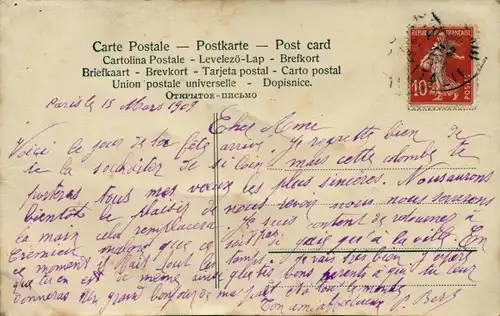 Carte Postale — Postkarte — Post card
Cartolina Postale - Levelező-Lap - Brefkort
Briefkaart - Brevkort - Tarjeta postal - Carto postal
Union postale universelle - Dopisnice.
Открытое-письмо
REPUBLIQUE FRANÇAISE
10
POSTES
Paris le 15 Mars 1909
Cher Ame
Voici le jour de ta fête arrivé. Je regrette bien de
te la souhaiter de si loin mais cette colombe te
portera tous mes vœux les plus sincères. Nous aurons
bientôt le plaisir de nous revoir nous nous
la main cela remplacera Je suis content de retourner à
malgré que ce que à la ville. En
ce moment il fait tout temps. Je vais très bien j'espère
que tu en est de même ainsi que tes bons parents à qui tu leur
donneras un grand bonjour de ma part et à tout le monde
Ton ami
P. Bers